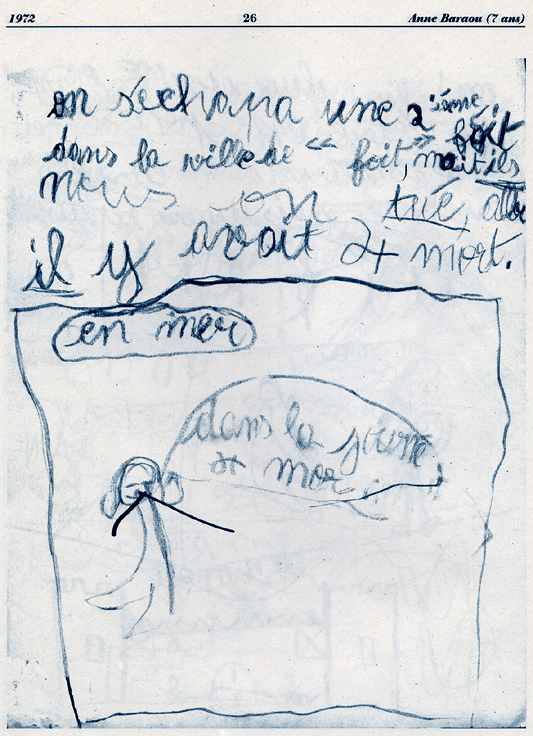 1972 26 Anne Baraou (7 ans)
on s'échapa une 2 ième foit
dans la ville de « foit, mait ils
nous on tué, alor
il y avait 4 mort.
en mer
dans la journé
4 mor